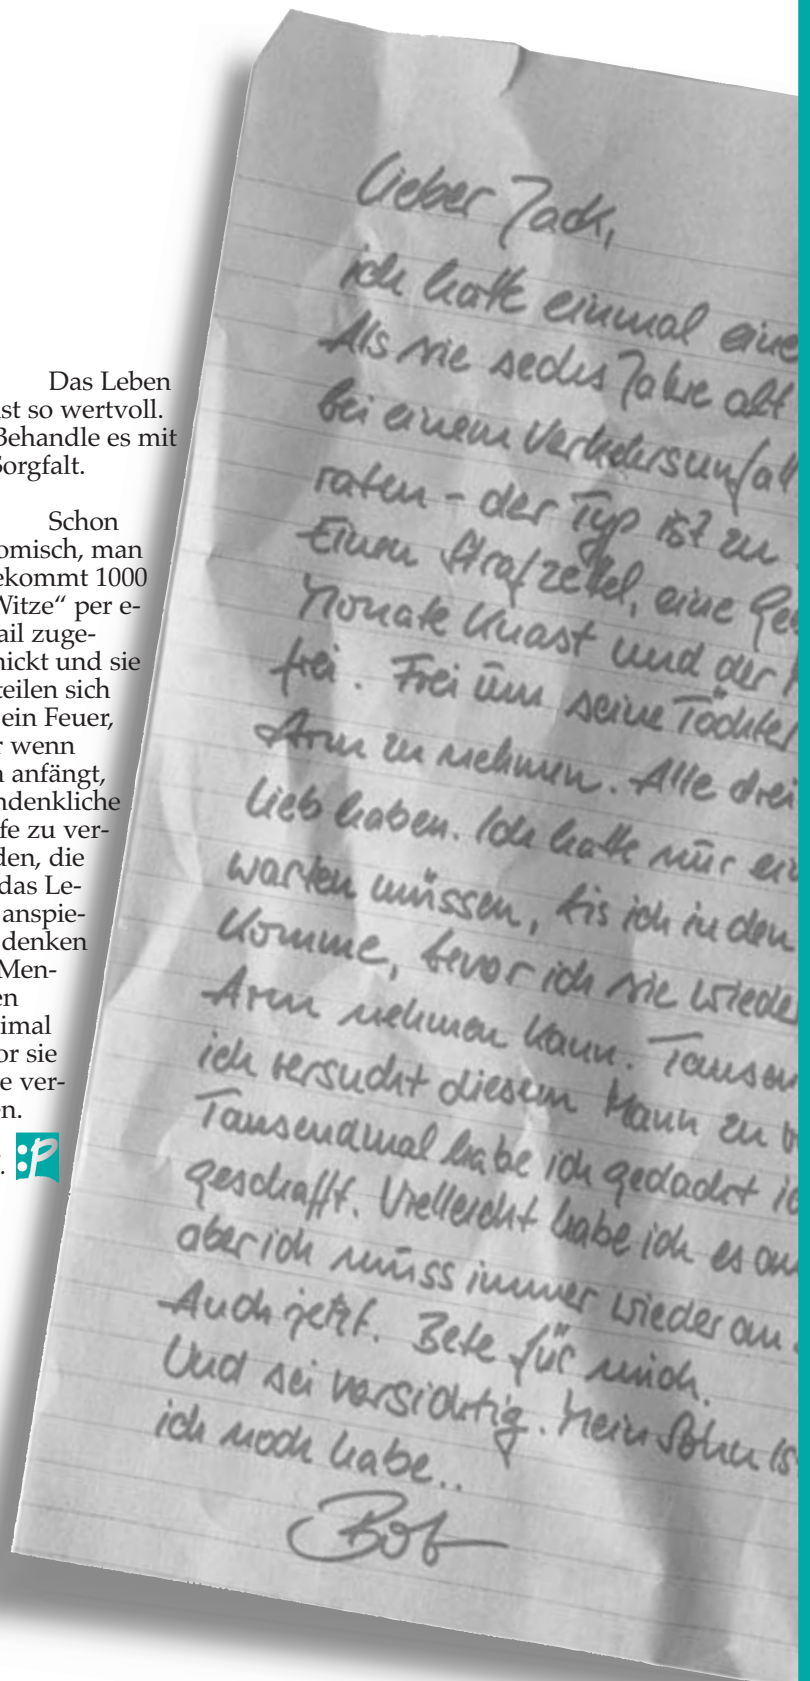 Das Leben
ist so wertvoll.
Behandle es mit
Sorgfalt.
Schon
omisch, man
ekommt 1000
Witze“ per e-
ail zuge-
hickt und sie
teilen sich
ein Feuer,
r wenn
n anfängt,
ndenkliche
fe zu ver-
den, die
das Le-
anspie-
denken
Men-
en
imal
or sie
e ver-
en.
:P
Lieber Jack,
ich hatte einmal eine
Als sie sechs Jahre alt
bei einem Verkehrsunfall
raten - der Typ ist zu
Einen Strafzettel, eine Gel
Monate Knast und der
frei. Frei um seine Töchter
Arm zu nehmen. Alle drei
lieb haben. Ich hatte nur ein
warten müssen, bis ich in den
komme, bevor ich sie wieder
Arm nehmen kann. Tausen
ich versucht diesem Mann zu v
Tausendmal habe ich gedacht ic
geschafft. Vielleicht habe ich es au
aber ich muss immer wieder an
Auch jetzt. Bete für mich.
Und sei vorsichtig. Mein Sohn is
ich noch habe..
Bob